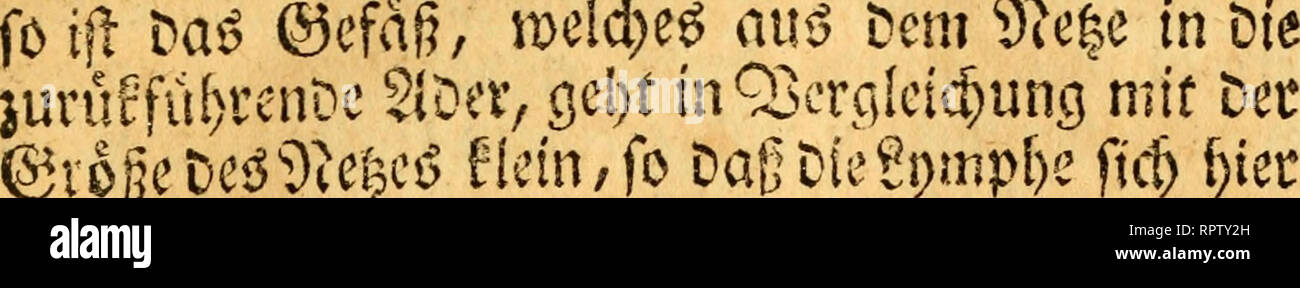 so ist das Gefäß, welches aus dem Netze in die
zurükführende Ader, geht in Vergleichung mit der
Größe des Netzes klein, so daß die Lymphe sich hier
alamy
alamy
Image ID: RPTY2H
www.alamy.com